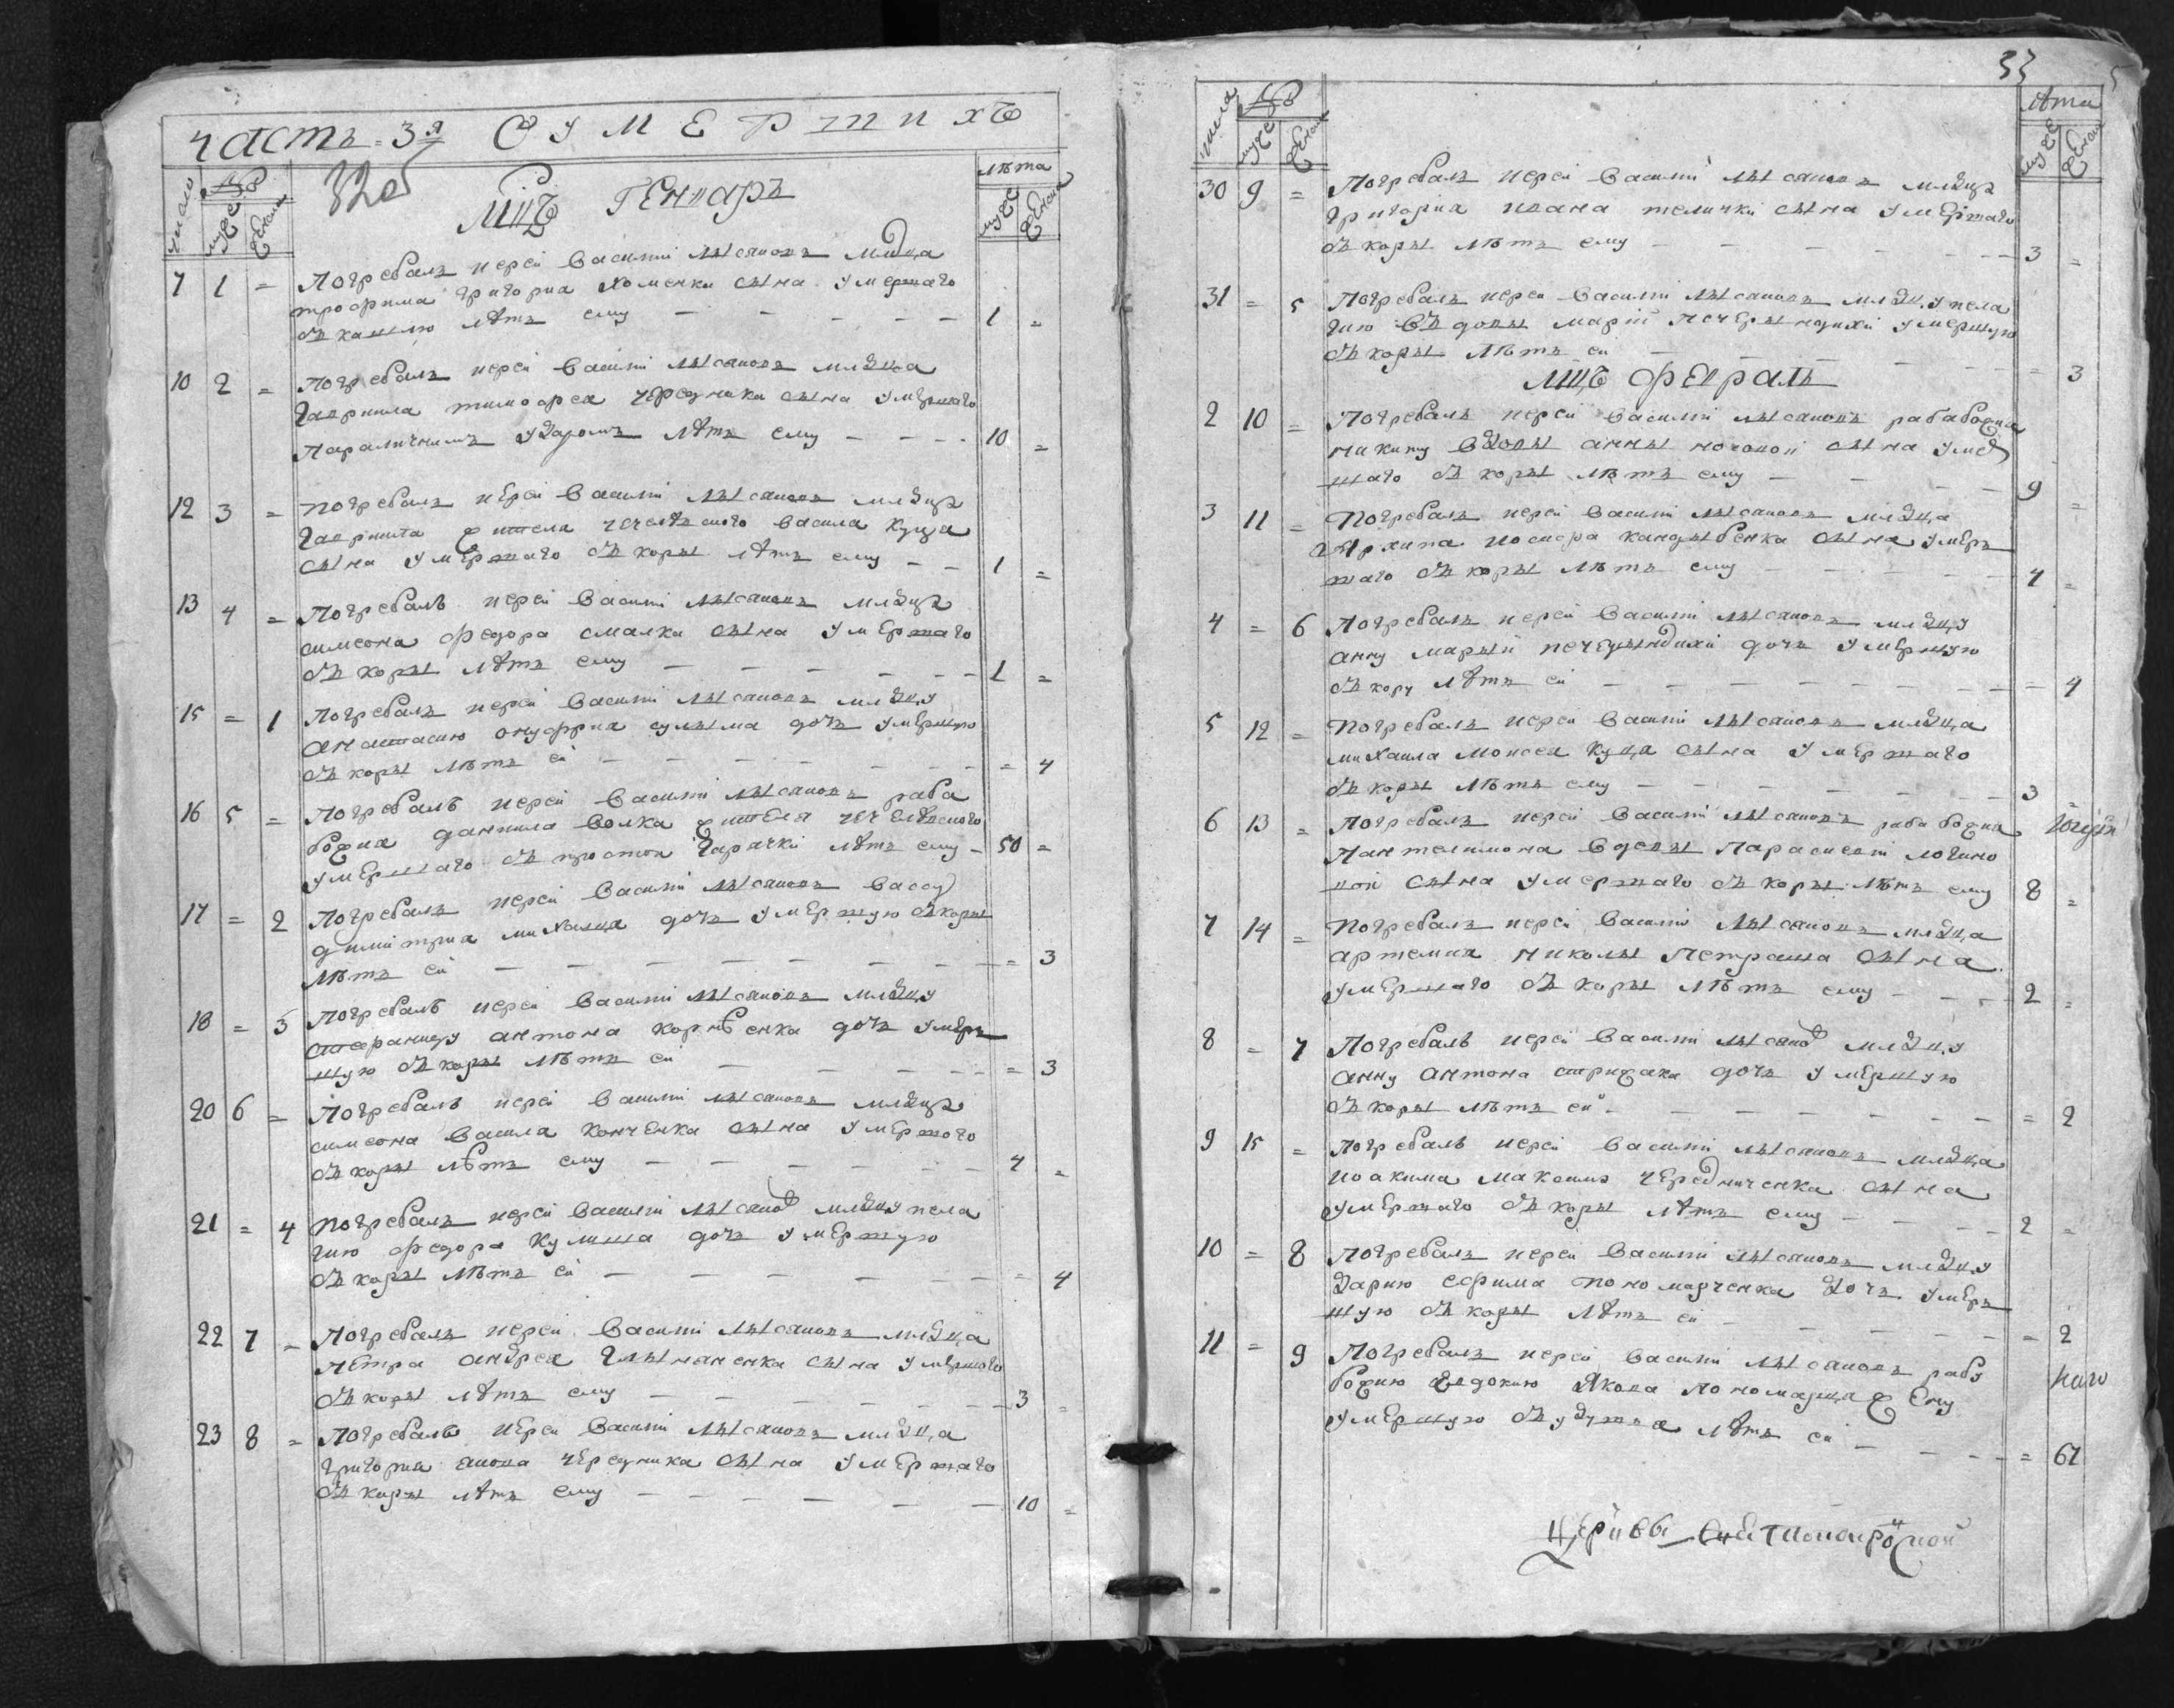 часть 3я О УМЕРШИХЪ
32об
число № мужеск женска Мцъ Генваръ лѣта мужеск женска
7 1 = Погребалъ иерей Василий Лысановъ младца
трофима григория Хоменки сына умершаго
отъ кашлю лѣтъ ему — 1 =
10 2 = Погребалъ иерей Василий Лысановъ младца
Гавриила тимофея чередника сына умершаго
Параличнимъ ударомъ лѣтъ ему — 10 =
12 3 = Погребалъ иерей Василий Лысановъ младца
Гавриила жителя василя куца
сына умершаго отъ коры лѣтъ ему — 1 =
13 4 = Погребалъ иерей Василий Лысановъ младца
симеона федора смалка сына умершаго
отъ коры лѣтъ ему — 1 =
15 = 1 Погребалъ иерей Василий Лысановъ младцу
анастасию онуфрия сулыма дочь умершую
отъ коры лѣтъ ей — = 4
16 5 = Погребалъ иерей Василий Лысановъ раба
божия даниила волка жителя
умершаго отъ простой гарачки лѣтъ ему — 50 =
17 = 2 Погребалъ иерей Василий Лысановъ Вассу
димитрия дочь умершую отъ коры
лѣтъ ей — = 3
18 = 3 Погребалъ иерей Василий Лысановъ младцу
стефаниду антона корнѣенка дочь умер
шую отъ коры лѣтъ ей — = 3
20 6 = Погребалъ иерей Василий Лысановъ младца
симеона василя конченка сына умершого
отъ коры лѣтъ ему — 4 =
21 = 4 Погребалъ иерей Василий Лысанов младцу пела
гию федора кулиша дочь умершую
отъ коры лѣтъ ей — = 4
22 7 = Погребалъ иерей Василий Лысановъ младца
петра андрея сына умершого
отъ коры лѣтъ ему — 3 =
23 8 = Погребалъ иерей Василий Лысановъ младца
григория чередника сына умершаго
отъ коры лѣтъ ему — 10 =
33
числа № мужеск женска лѣта мужеск женска
30 9 = Погребалъ иерей Василий Лысановъ младца
григория ивана телички сына умершаго
отъ коры лѣтъ ему — 3 =
31 = 5 Погребалъ иерей Василий Лысановъ младцу пела
гию вдовы марий умершую
отъ коры лѣтъ ей — = 3
Мцъ Февраль
2 10 = Погребалъ иерей Василий Лысановъ раба божия
никиту вдовы анны сына умер
шаго отъ коры лѣтъ ему — 9 =
3 11 = Погребалъ иерей Василий Лысановъ младца
Архипа иосифа кандыбенка сына умер
шаго отъ коры лѣтъ ему — 4 =
4 = 6 Погребалъ иерей Василий Лысановъ младцу
анну марый дочь умершую
отъ кору лѣтъ ей — = 4
5 12 = Погребалъ иерей Василий Лысановъ младца
михаила моисея куца сына умершаго
отъ коры лѣтъ ему — 3
6 13 = Погребалъ иерей Василий Лысановъ раба божия
Пантелимона вдовы Параскевии логино
вой сына умершаго отъ коры лѣтъ ему 8 =
7 14 = Погребалъ иерей Василий Лысановъ младца
артемия николы Петраша сына
умершаго отъ коры лѣтъ ему — 2 =
8 = 7 Погребалъ иерей Василий Лысанов младцу
анну антона стрижака дочь умершую
отъ коры лѣтъ ей — = 2
9 15 = Погребалъ иерей Василий Лысановъ младца
иоакима максима чередниченка сына
умершаго отъ коры лѣтъ ему — 2 =
10 = 8 Погребалъ иерей Василий Лысановъ младцу
дарию ефима пономарченка дочь умер
шую отъ коры лѣтъ ей — = 2
11 = 9 Погребалъ иерей Василий Лысановъ рабу
божию Евдокию Якова Пономарца жену
умершую отъ удушья лѣтъ ей — = 61
Церкви